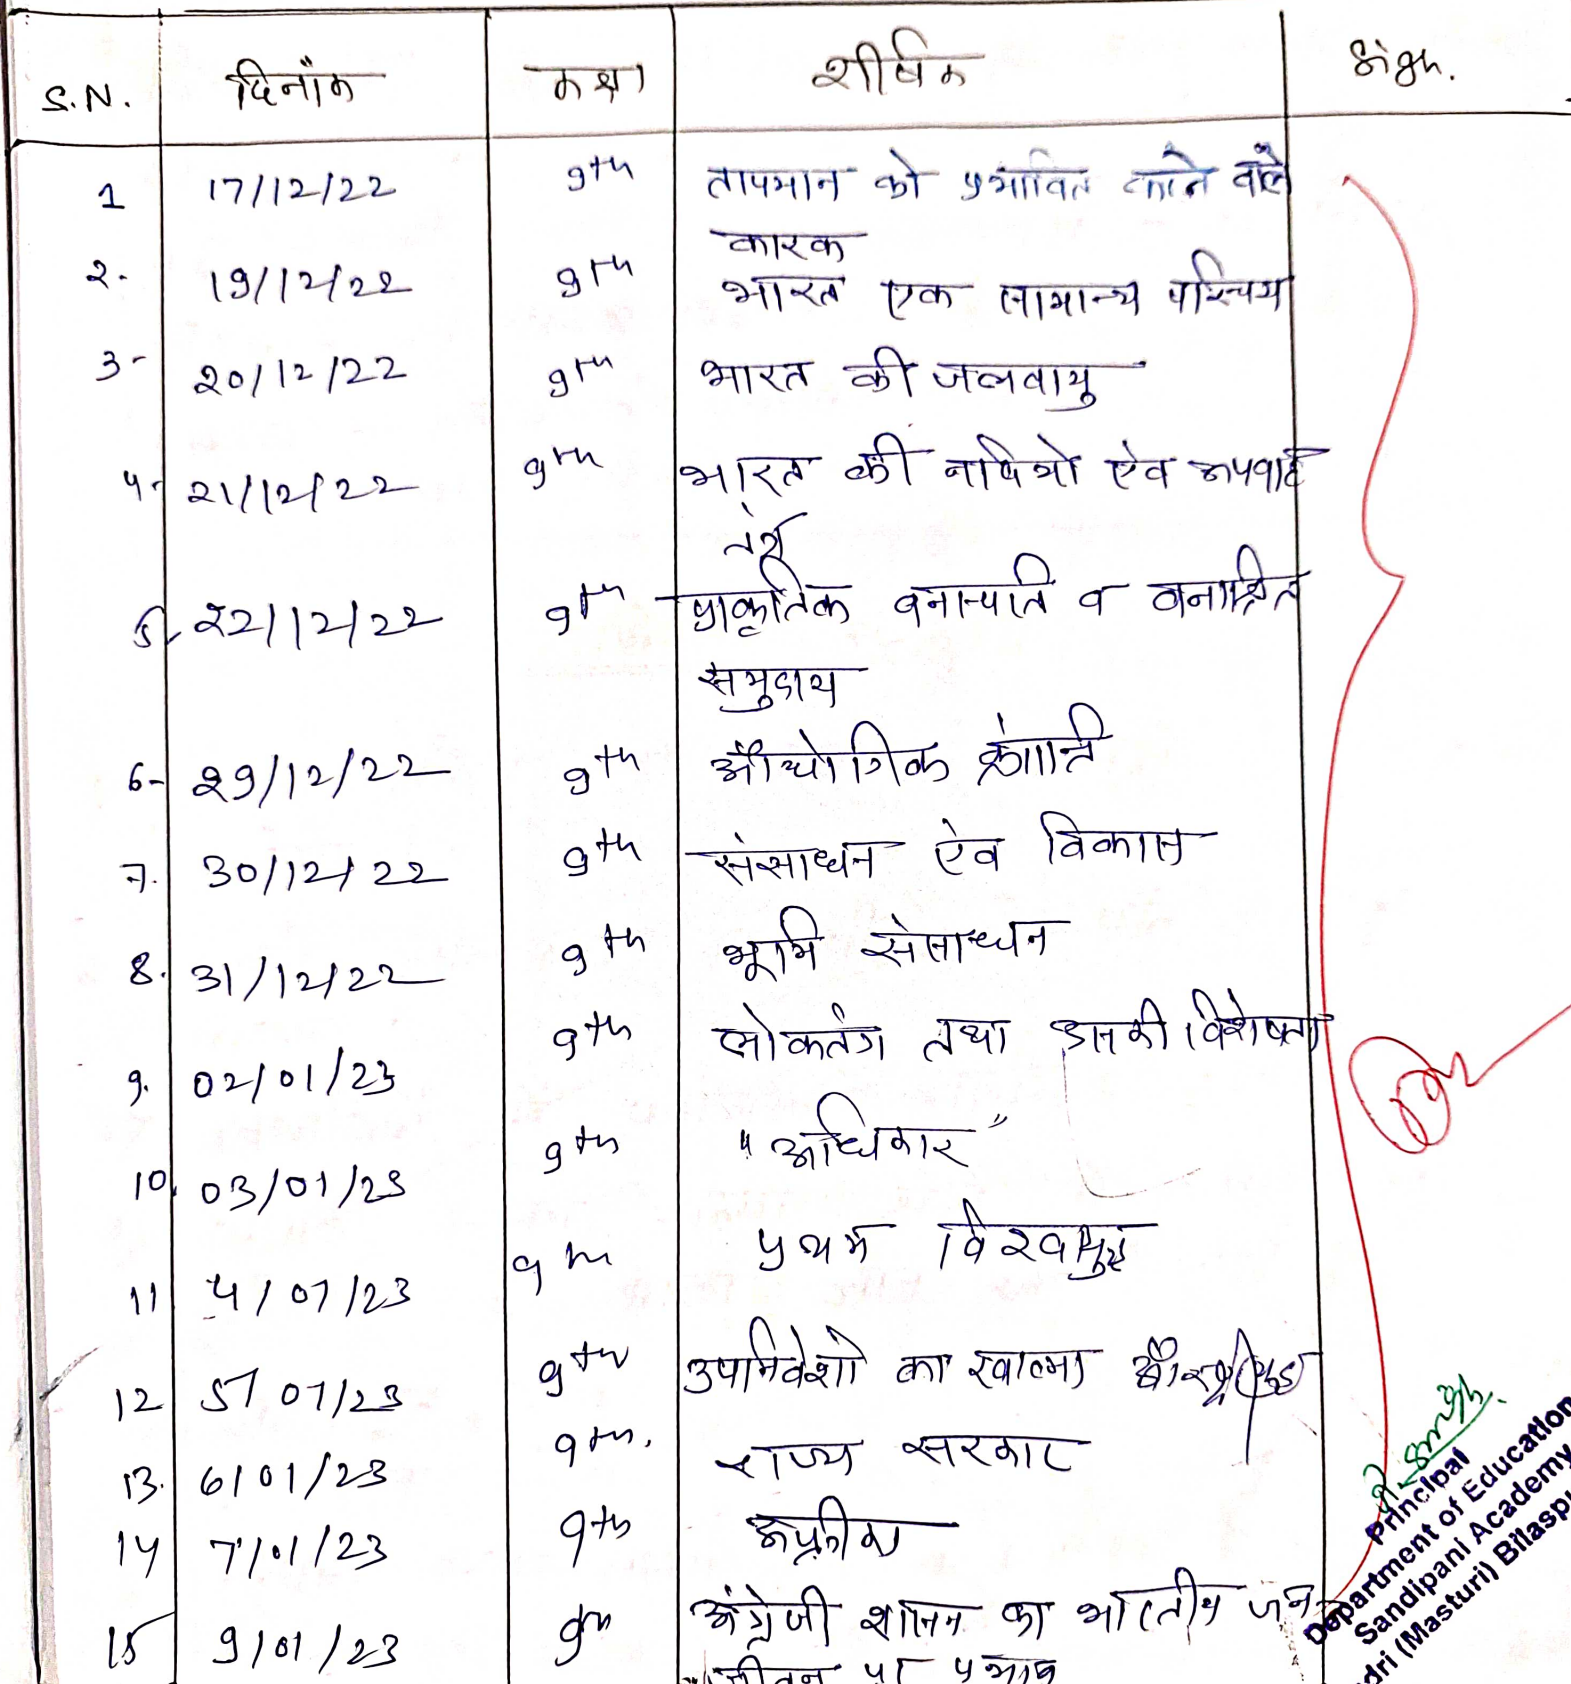 S.N. दिनाँक कक्षा शीर्षक Sign.
1 17/12/22 9th तापमान को प्रभावित करने वाले
कारक
2. 19/12/22 9th भारत एक सामान्य परिचय
3- 20/12/22 9th भारत की जलवायु
4- 21/12/22 9th भारत की नदियो ऐव अपवाह
तंत्र
5. 22/12/22 9th प्राकृतिक वनास्पति व वनाश्रित
समुदाय
6- 29/12/22 9th औद्योगिक क्रांति
7. 30/12/22 9th संसाधन ऐव विकास
8. 31/12/22 9th भूमि संसाधन
9. 02/01/23 9th लोकतंत्र तथा उसकी विशेषता
10. 03/01/23 9th "अधिकार"
11 4/01/23 9th प्रथम विश्वयुद्ध
12 5/01/23 9th उपनिवेशो का खात्मा
13. 6/01/23 9th. राज्य सरकार
14 7/01/23 9th अफ्रीका
15 9/01/23 9th अंग्रेजी शासन का भारतीय जन
जीवन पर प्रभाव
Principal
Department of Education
Sandipani Academy
(Masturi) Bilasp